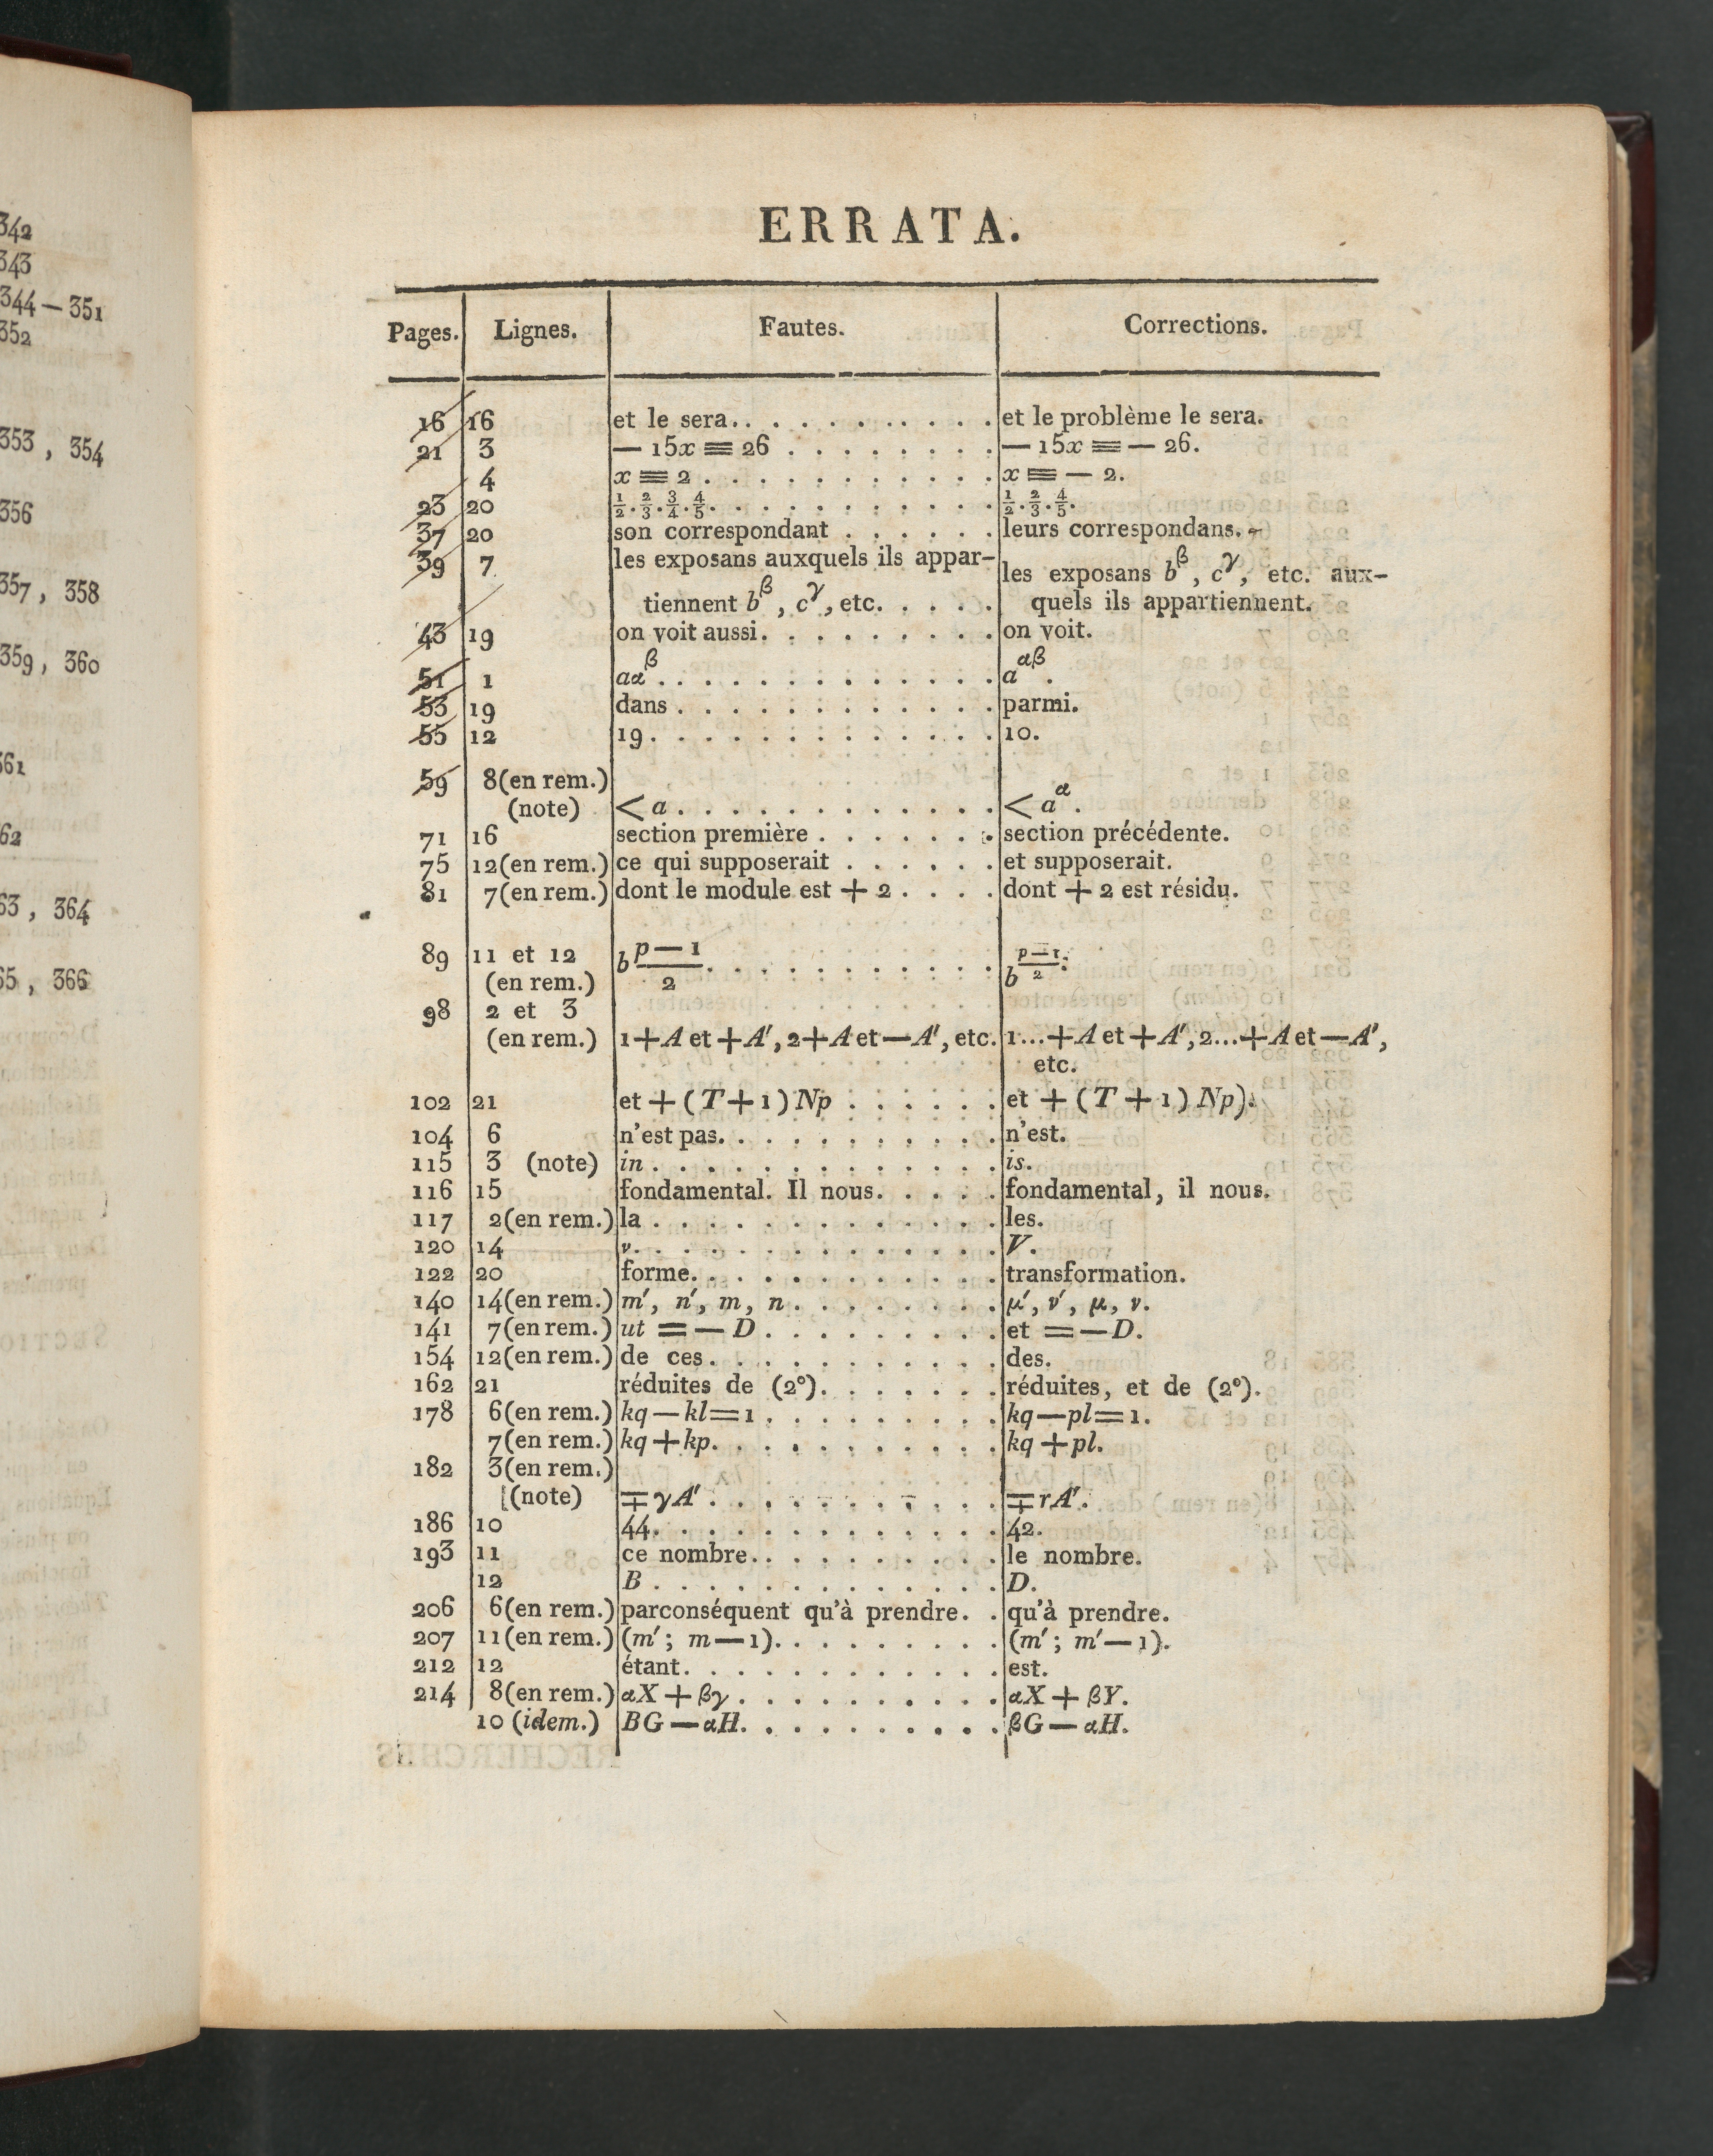 342
343
344 — 351
352
353 , 354
356
357 , 358
359 , 360
361
362
363 , 364
365 , 366
ERRATA.
Pages. Lignes. Fautes. Corrections.
16 16 et le sera. . . . . . . . . . et le problème le sera.
21 3 — 15x ≡ 26 . . . . . . . . — 15x ≡ — 26.
4 x ≡ 2 . . . . . . . . . . . x ≡ — 2.
23 20 1/2 . 2/3 . 3/4 . 4/5 . . . . . . . . . . . 1/2 . 2/3 . 4/5 .
37 20 son correspondant . . . . . . leurs correspondans.
39 7 les exposans auxquels ils appar-
tiennent b^β , c^γ , etc. . . . . les exposans b^β , c^γ , etc. aux-
quels ils appartiennent.
43 19 on voit aussi. . . . . . . . . on voit.
51 1 aα^β . . . . . . . . . . . . . a^αβ .
53 19 dans . . . . . . . . . . . . parmi.
55 12 19. . . . . . . . . . . . . 10.
59 8(en rem.)
(note) < a . . . . . . . . . . . . < a^α .
71 16 section première . . . . . . . section précédente.
75 12(en rem.) ce qui supposerait . . . . . . et supposerait.
81 7(en rem.) dont le module est + 2 . . . . dont + 2 est résidu.
89 11 et 12
(en rem.) b (p — 1)/2 . . . . . . . . . . . b^(p—1)/2 .
98 2 et 3
(en rem.) 1+A et +A′, 2+A et —A′, etc. 1...+A et +A′, 2...+A et —A′,
etc.
102 21 et + (T+1) Np . . . . . . et + (T + 1) Np).
104 6 n'est pas. . . . . . . . . . . n'est.
115 3 (note) in . . . . . . . . . . . . . is.
116 15 fondamental. Il nous. . . . . fondamental, il nous.
117 2(en rem.) la . . . . . . . . . . . . . les.
120 14 ν. . . . . . . . . . . . . . V.
122 20 forme. . . . . . . . . . . . transformation.
140 14(en rem.) m′, n′, m, n . . . . . . . . μ′, ν′, μ, ν.
141 7(en rem.) ut = — D . . . . . . . . . et = — D.
154 12(en rem.) de ces. . . . . . . . . . . des.
162 21 réduites de (2°). . . . . . . réduites, et de (2°).
178 6(en rem.) kq — kl = 1 . . . . . . . . . kq — pl = 1.
7(en rem.) kq + kp. . . . . . . . . . . kq + pl.
182 3(en rem.)
(note) ∓ γA′ . . . . . . . . . . . ∓ rA′.
186 10 44. . . . . . . . . . . . . 42.
193 11 ce nombre. . . . . . . . . . le nombre.
12 B . . . . . . . . . . . . . D.
206 6(en rem.) parconséquent qu'à prendre. . qu'à prendre.
207 11(en rem.) (m′ ; m — 1). . . . . . . . . (m′ ; m′ — 1).
212 12 étant. . . . . . . . . . . . est.
214 8(en rem.) αX + βγ . . . . . . . . . . αX + βY.
10 (idem.) BG — αH. . . . . . . . . . βG — αH.